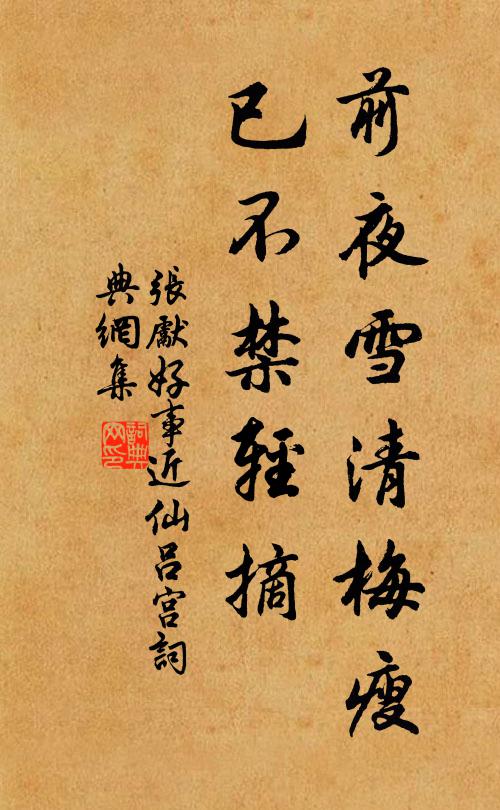 前夜雪清梅瘦
已不禁輕摘
張獻好事近仙吕宫詞
典網集
詞典
网印